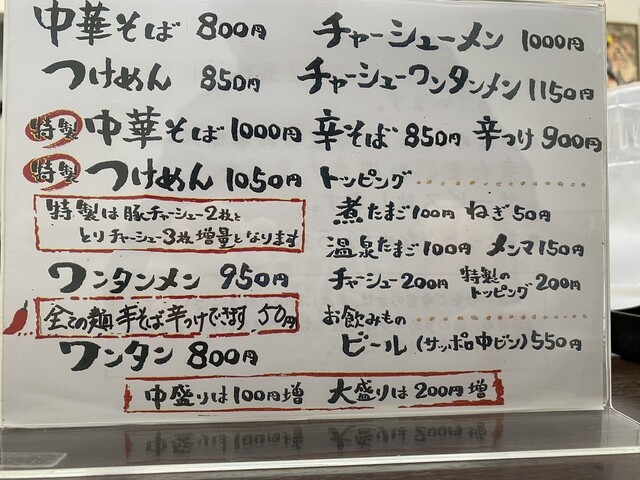 中華そば 800円
つけめん 850円
特製 中華そば 1000円
特製 つけめん 1050円
特製は豚チャーシュー2枚と
とりチャーシュー3枚増量となります
ワンタンメン 950円
全ての麺辛そば辛つけできます 50円
ワンタン 800円
チャーシューメン 1000円
チャーシューワンタンメン 1150円
辛そば 850円 辛つけ 900円
トッピング
煮たまご100円 ねぎ50円
温泉たまご100円 メンマ150円
チャーシュー200円 特製のトッピング 200円
お飲みもの
ビール(サッポロ中ビン)550円
中盛りは100円増 大盛りは200円増